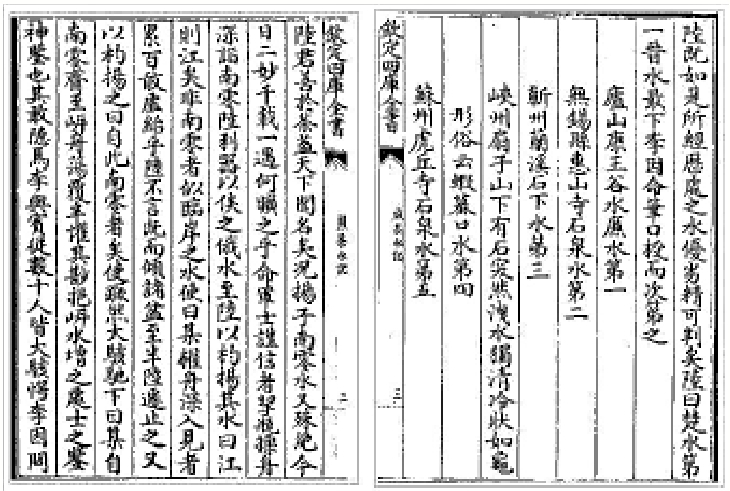 陸既如是所經歷處之水優劣精可判矣陸曰楚水第
一晉水最下李因命筆口授而次第之
廬山康王谷水簾水第一
無錫縣惠山寺石泉水第二
蘄州蘭溪石下水第三
峽州扇子山下有石突然洩水獨清冷狀如龜
形俗云蝦蟇口水第四
蘇州虎丘寺石泉水第五
欽定四庫全書
煎茶水記
三
欽定四庫全書
煎茶水記
二
陸君善於茶蓋天下聞名矣況揚子南零水又殊絕今
日二妙千載一遇何曠之乎命軍士謹信者挈瓶操舟
深詣南零陸利器以俟之俄水至陸以杓揚其水曰江
則江矣非南零者似臨岸之水使曰某櫂舟深入見者
累百敢虛紿乎陸不言既而傾諸盆至半陸遽止之又
以杓揚之曰自此南零者矣使蹶然大駭馳下曰某自
南零齎至岸舟蕩覆半懼其尠挹岸水增之處士之鑒
神鑒也其敢隱焉李與賓從數十人皆大駭愕李因問